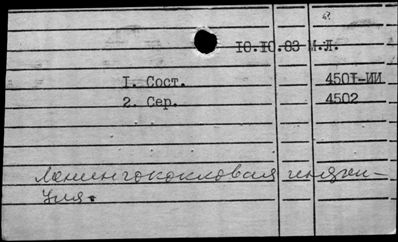 10.10.83 М.Л.
1. Сост. 4501-ИИ
2. Сер. 4502
Менингококковая инфек-
ция.